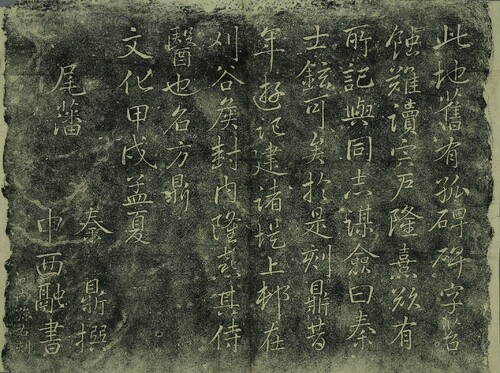 此地舊有孤碑碑字苔
蝕難讀室戶隆熹欲有
所記與同志謀僉曰秦
士鉉可矣於是刻鼎昔
年遊記建諸堤上邨在
刈谷矦封内隆熹其侍
醫也名方鼎
文化甲戌孟夏
尾藩 秦鼎撰
中西融書